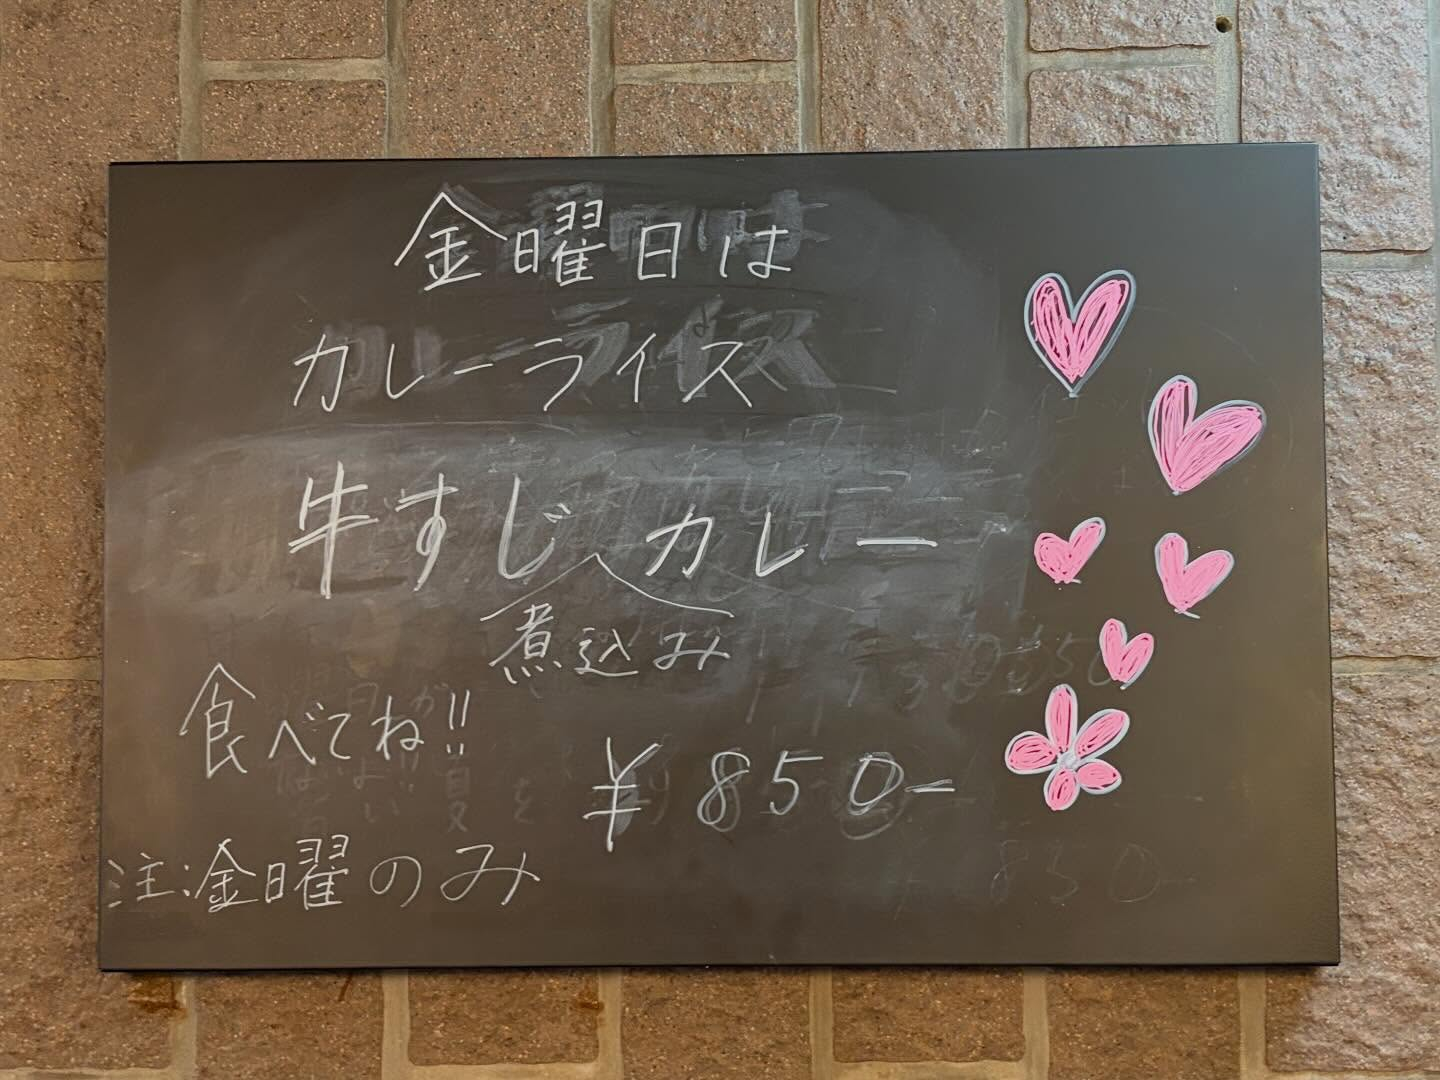 金曜日は
カレーライス
牛すじカレー
煮込み
食べてね!!
¥850-
注:金曜のみ